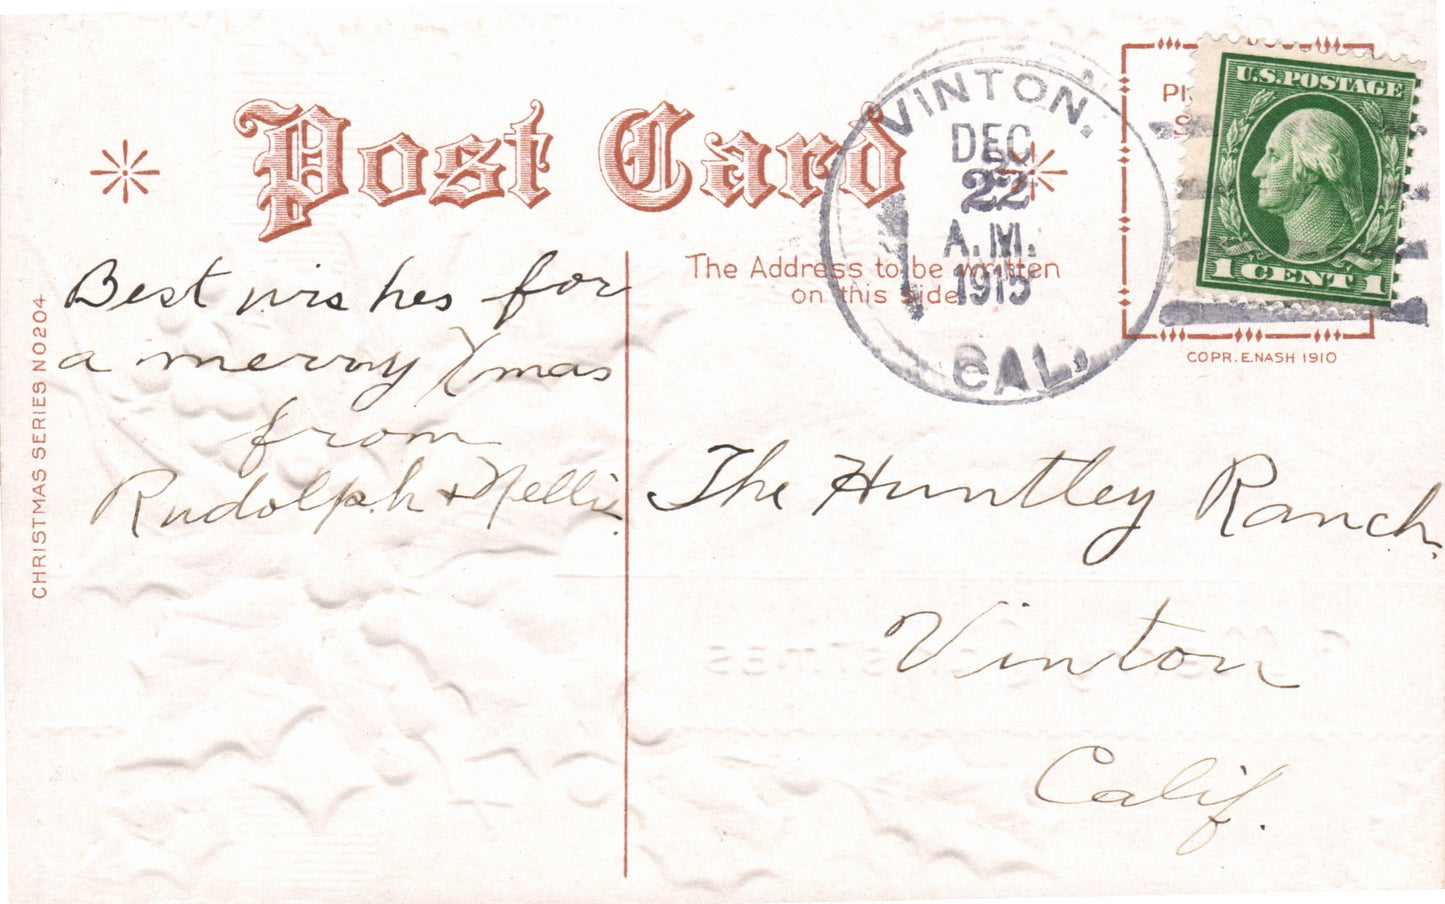 Post Card
VINTON.
DEC
22
A.M.
1915
CAL.
U.S.POSTAGE
1 CENT 1
The Address to be written
on this side
COPR. E. NASH 1910
CHRISTMAS SERIES NO204
Best wishes for
a merry Xmas
from
Rudolph + Nellie.
The Huntley Ranch.
Vinton
Calif.